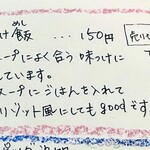 め飯 めし … 150円
ープによく合う味つけに
しています。
スープにごはんを入れて
リゾット風にしてもgoodです